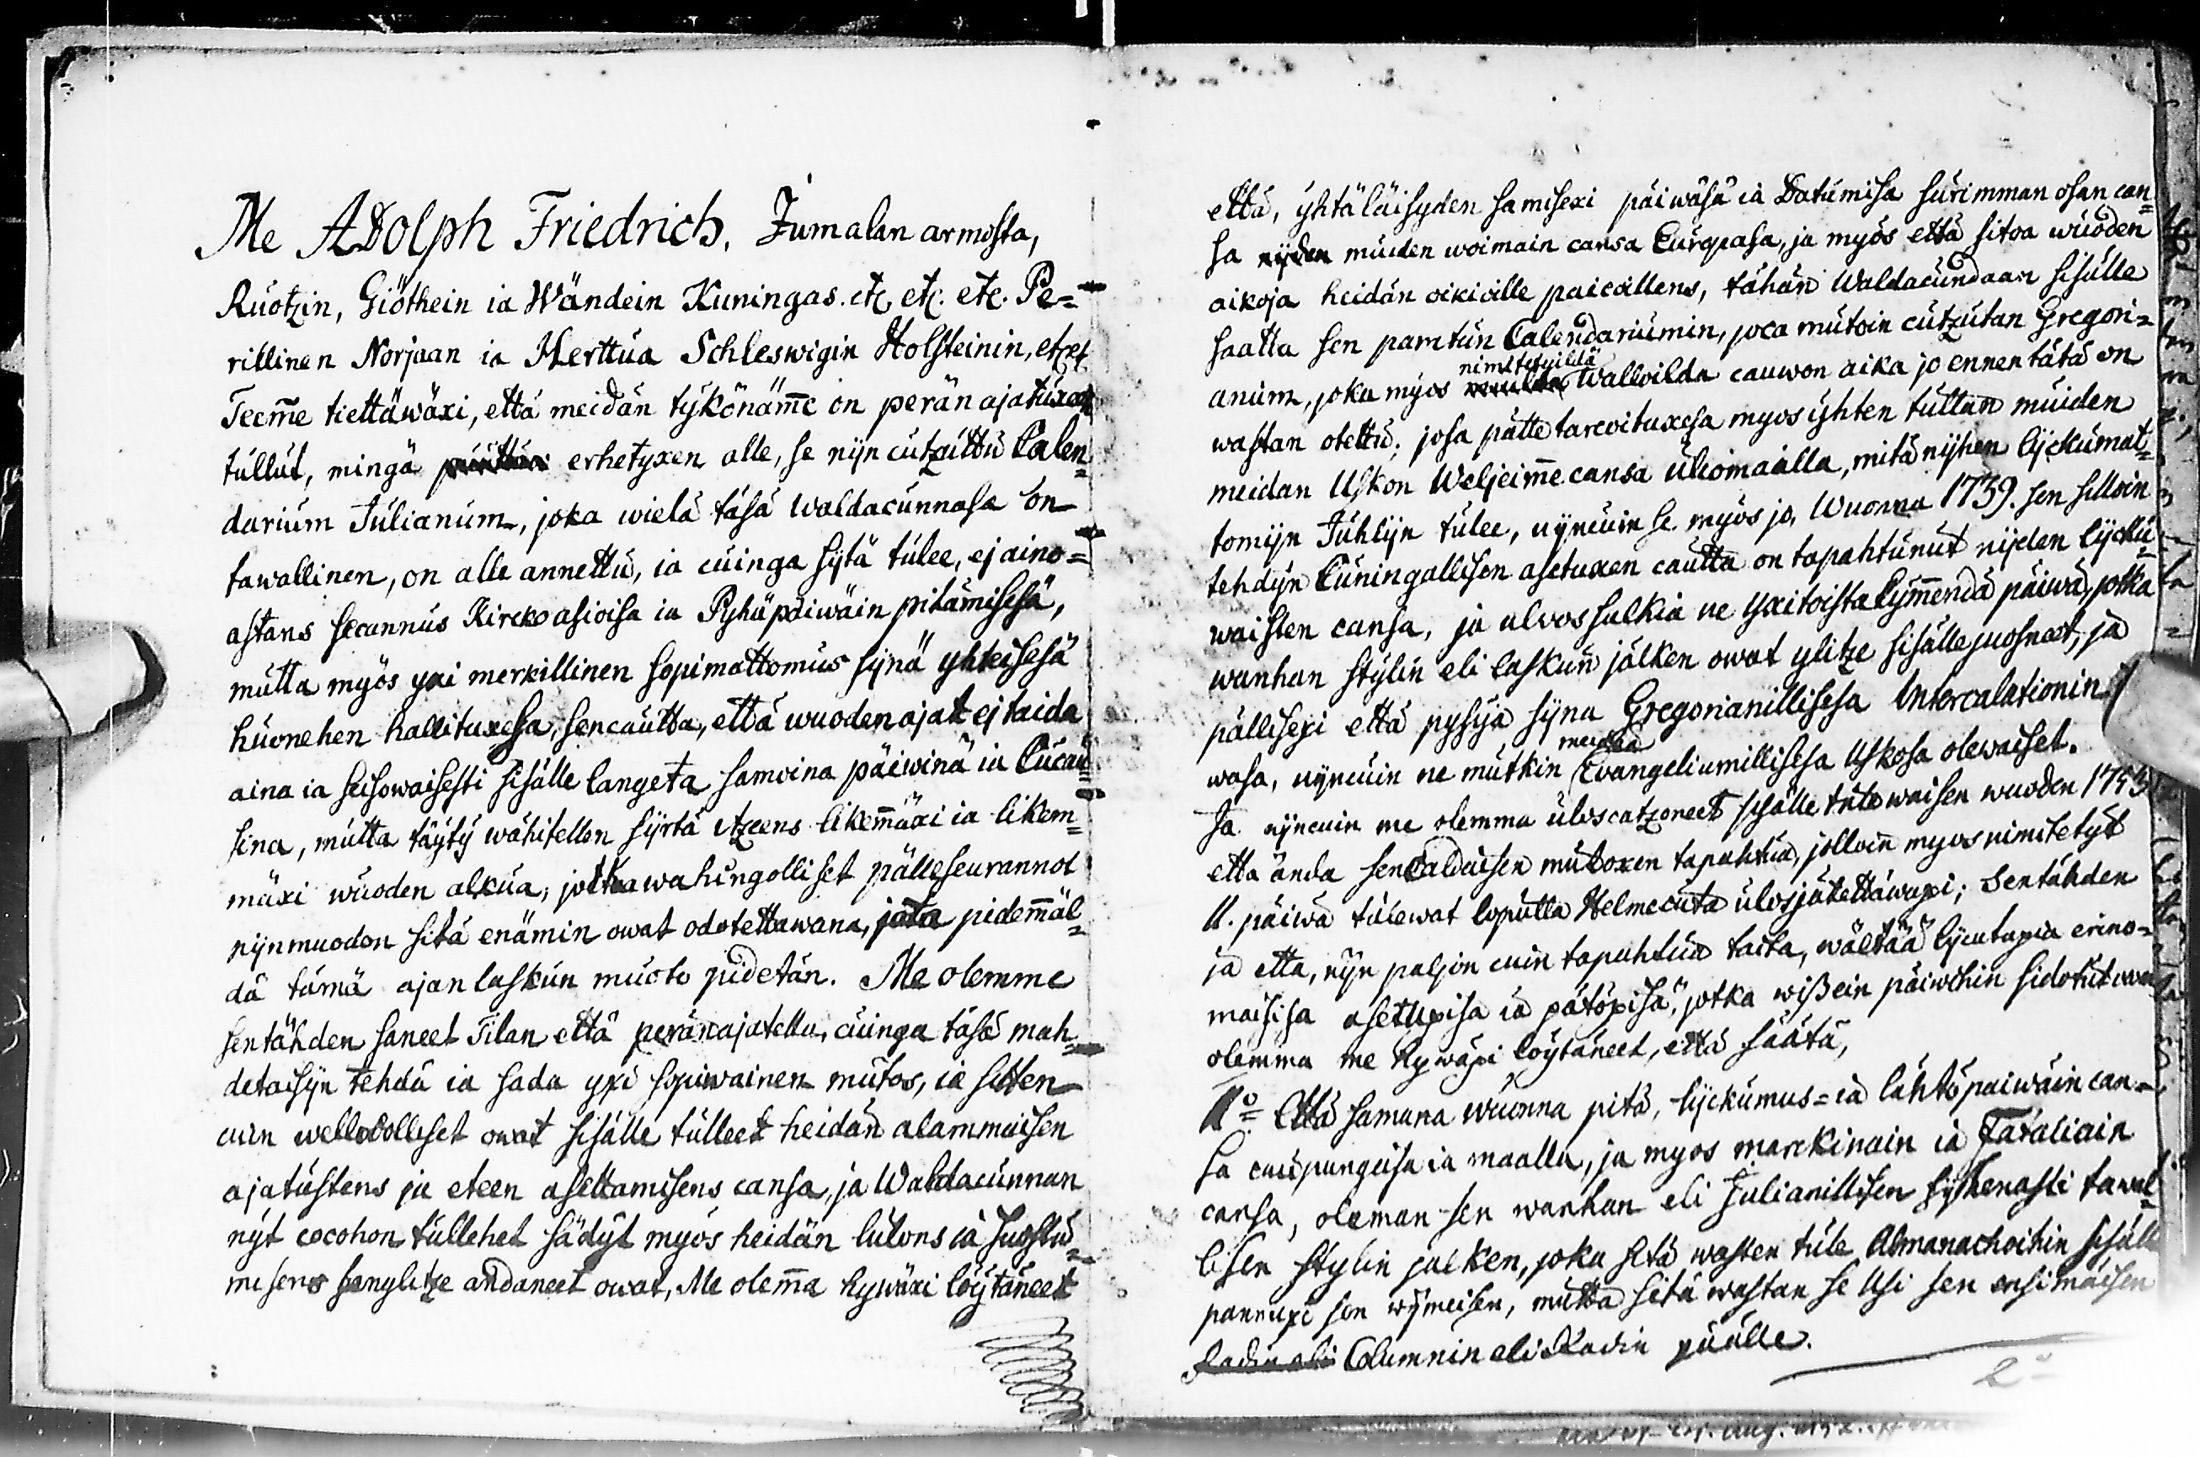 Me ADolph Friedrich, Jumalan armosta,
Ruotzin, Giöthein ia Wändein Kuningas. etc. etc. etc. Pe=
rillinen Norjaan ia Herttua Schleswigin Holsteinin, etc etc
Teem̅e tiettäwäxi, että meidän tykönäm̅e on perän ajatuxen
tullut, mingä erhetyxen alle, se nijn cutzuttu Calen=
darium Julianum, joka wielä täsä waldacunnasa on
tawallinen, on alle annettu, ia cuinga sijtä tulee, ej aino=
astans secannus Kircko asioisa ia Pyhäpäiwäin pitämisesä,
mutta myös yxi merkillinen sopimattomus sijnä yhteisesä
huonehen hallituxesa, sencautta, että wuoden ajat ej taida
aina ia seisowaisesti sisälle langeta samoina päiwinä ia Cucau=
sina, mutta täyty wähitellen sijrtä itzeens likem̅äxi ia likem=
mäxi wuoden alkua, jotka wahingolliset pälleseurannot
nijnmuodon sitä enämin owat odotettawana, jota pidem̅äl=
dä tämä ajan laskun muoto pidetän. Me olemme
sentähden saneet Tilan että peränajatella, cuinga täsä mah=
detaisijn tehdä ia sada yxi sopiwainen mutos, ia sitten
cuin welwolliset owat sisälle tulleet heidän alammaisen
ajatustens ja eteen asettamisens cansa, ja Waldacunnan
nyt cocohon tullehet Säädyt myös heidän lutons ia suostu=
misens sen ylitze andaneet owat, Me olem̅a hywäxi löytäneet
että, yhtäläisyden samisexi päiwäsä ia Datumisa surimman osan can=
sa nijden muiden woimain cansa Europasa, ja myös että sitoa wuoden
aikoja heidän oikioille paicoillens, tähän Waldacundaan sisälle
saatta sen parattun Calendariumin, joca mutoin cutzutan Gregori=
anum, joka myös nimitetyildä Walloilda cauwon aika jo ennen tätä on
wastan otettu; josa pätte tarcoituxesa myos yhten tullan muiden
meidan Uskon Weljeim̅e cansa ulcomaalla, mitä nijhen lijckumat=
tomijn Juhlijn tulee, nijncuin se myös jo, Wuonna 1739. sen silloin
tehdyn Cuningallisen asetuxen cautta on tapahtunut nijden lijcku=
waisten cansa, ja ulossulkia ne yxitoistakym̅endä päiwä, jotka
wanhan stylin eli laskun jälken owat ylitze sisälle juosneet, ja
pällisexi että pysyä sijna Gregorianillisesa Intercalationin
wasa, nijncuin ne mutkin muusa Evangeliumillisesa Uskosa olewaiset.
Ja nijncuin me olemma uloscatzoneet sisälle tulewaisen wuoden 1753
että anda sencaldaisen mutoxen tapahtua, jolloin myos nimitetyt
11. päiwä tulewat lopulla Helmecuta ulosjätettäwäxi; Sentähden
ja etta, nijn paljon cuin tapahtua taita, wälttää lijcutuxia erino=
maisisa asetuxisa ia pätöxisä, jotka wißein päiwihin sidotut owat
olemma me hywäxi löytäneet, että säätä,
1:o Että samana wuonna pitä, lijckumus= ia lähtöpaiwäin can=
sa caupungeisa ia maalla, ja myos marckinain ia Fataliain
cansa, oleman sen wanhan eli Julianillisen Systemasti tawal=
lisen stylin jälken, joka sitä wasten tule Almanachoihin sisälle
pannuxi sen wijmeisen, mutta sitä wastan se Usi sen ensimäisen
Radin eli Columnin eli Radin päälle.
2:o